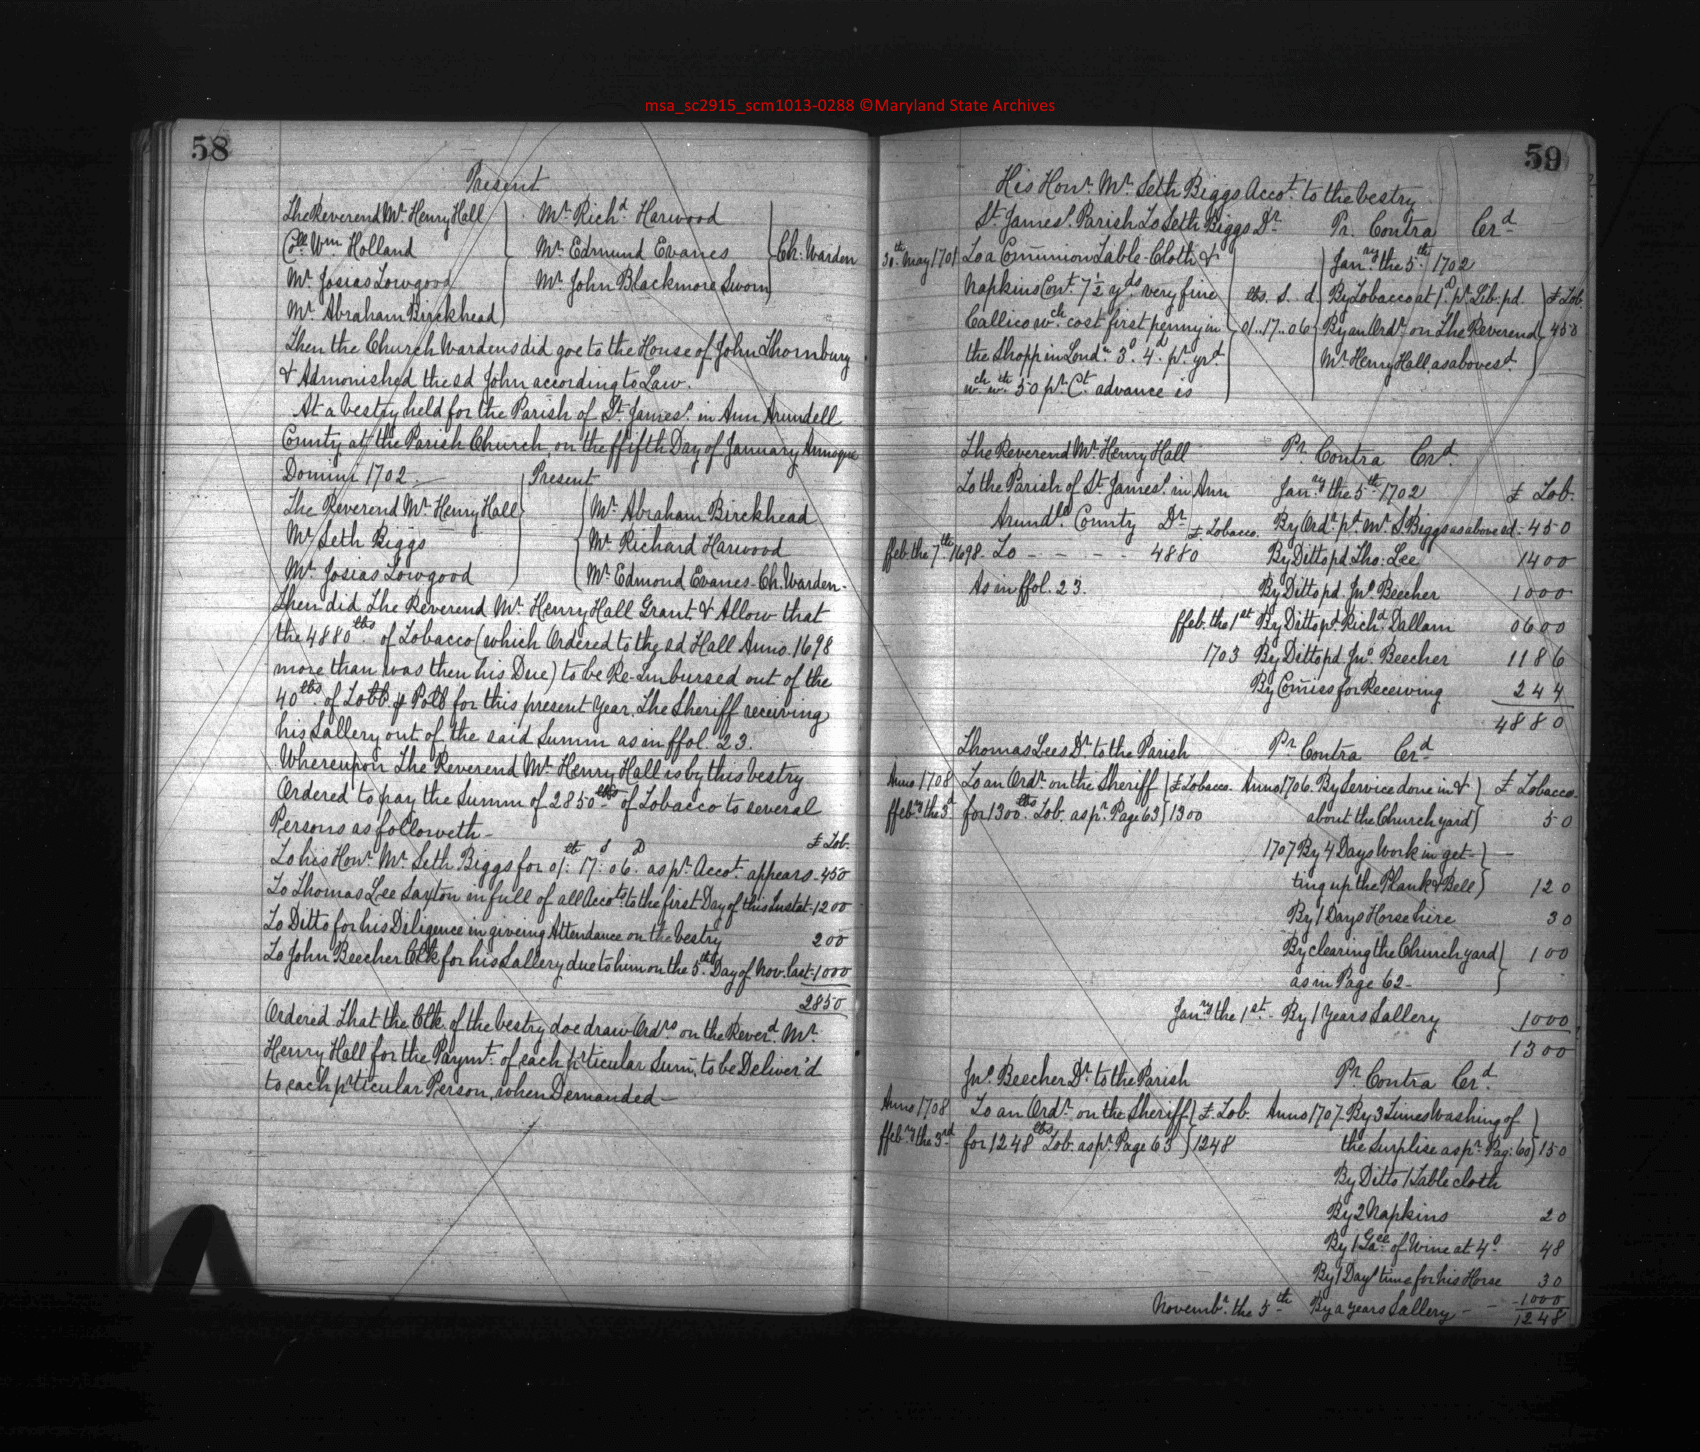 msa_sc2915_scm1013-0288 ©Maryland State Archives
58
Present
The Reverend Mr. Henry Hall
Coll Wm Holland
Mr. Josias Towgood
Mr. Abraham Birckhead
Mr. Richd. Harwood
Mr. Edmund Evanes
Mr. John Blackmore Sworn
Ch: Warden
Then the Church Wardens did goe to the House of John Thornbury
& Admonished the sd John according to Law.
At a vestry held for the Parish of St. James's. in Ann Arundell
County at the Parish Church, on the ffifth Day of January Annoque
Domini 1702.
Present
The Reverend Mr. Henry Hall
Mr. Seth Biggs
Mr. Josias Towgood
Mr. Abraham Birckhead
Mr. Richard Harwood
Mr. Edmond Evanes-Ch. Warden-
Then did The Reverend Mr. Henry Hall Grant & Allow that
the 4880lbs of Tobacco (which Ordered to the sd Hall Anno. 1698
more than was then his Due) to be Re-imbursed out of the
40lbs. of Tobb. p Poll for this present Year, The Sheriff receiving
his Sallery out of the said Summ as in ffol. 23.
Whereupon The Reverend Mr. Henry Hall is by this vestry
Ordered to pay the Summ of 2850lbs of Tobacco to several
Persons as followeth-
₤ Tob.
To his Honr. Mr. Seth Biggs for 01: 17: 06. as pr. Accot. appears-450
To Thomas Lee Saxton in full of all Accots. to the first Day of this Instat-1200
To Ditto for his Diligence in giveing Attendance on the vestry 200
To John Beecher Clk for his Sallery due to him on the 5th Day of Nov. last-1000
2850
Ordered That the Clk. of the vestry doe draw Ordrs on the Reverd. Mr.
Henry Hall for the Paymt. of each pticular Sum, to be Deliver'd
to each pticular Person, when Demanded-
59
His Honr. Mr. Seth Biggs Accot. to the vestry
St. James's. Parish To Seth Biggs Dr.
Pr. Contra Crd
30th. May 1701 To a Communion Table-Cloth &
Napkins Cont. 7½ yds. very fine
Callico wch. cost first penny in
the Shopp in Lond. 3s. 4d. pr. yrd
wch. wth 50 pr. Ct. advance is
lbs. S. d
01..17..06
Janry the 5th. 1702
By Tobacco at 1d. pr. Lib. pd.
By an Ordr. on The Reverend
Mr. Henry Hall, as above sd.
₤ Tob.
450
The Reverend Mr. Henry Hall
Pr. Contra Crd.
To the Parish of St. James's. in Ann
Janry the 5th 1702 ₤ Tob.
Arundll. County Dr.
₤ Tobacco.
By Ordr. pd. Mr. S. Biggs as above sd. 450
ffeb. the 7th 1698. To - - - - 4880
By Ditto pd Tho: Lee 1400
As in ffol. 23.
By Ditto pd. Jno. Beecher 1000
ffeb. the 1st By Ditto pd Richd. Dallam 0600
1703 By Ditto pd Jno. Beecher 1186
By Comiss for Receiving 244
4880
Thomas Lees Dr. to the Parish
Pr. Contra Crd
Anno 1708 To an Ordr. on the Sheriff
₤ Tobacco.
Anno 1706. By Service done in &
₤ Tobacco-
ffebry the 3d for 1300lbs Tob. as pr. Page 63 1300
about the Church yard 50
1707 By 4 Days Work in get-
ting up the Plank & Bell 120
By 1 Days Horse hire 30
By clearing the Church yard 100
as in Page 62-
Janry the 1st. By 1 Years Sallery 1000
1300
Jno. Beecher Dr. to the Parish
Pr. Contra Crd.
Anno 1708 To an Ordr. on the Sheriff
₤. Tob.
Anno 1707. By 3 Times Washing of
ffebry the 3rd for 1248lbs Tob. as pr. Page 63 1248
the Surplise as pr. Pag: 60 150
By Ditto 1 Table cloth
By 2 Napkins 20
By 1 Gall. of Wine at 4s. 48
By 1 Day's time for his Horse 30
Novembr. the 5th By a years Sallery - - 1000
1248